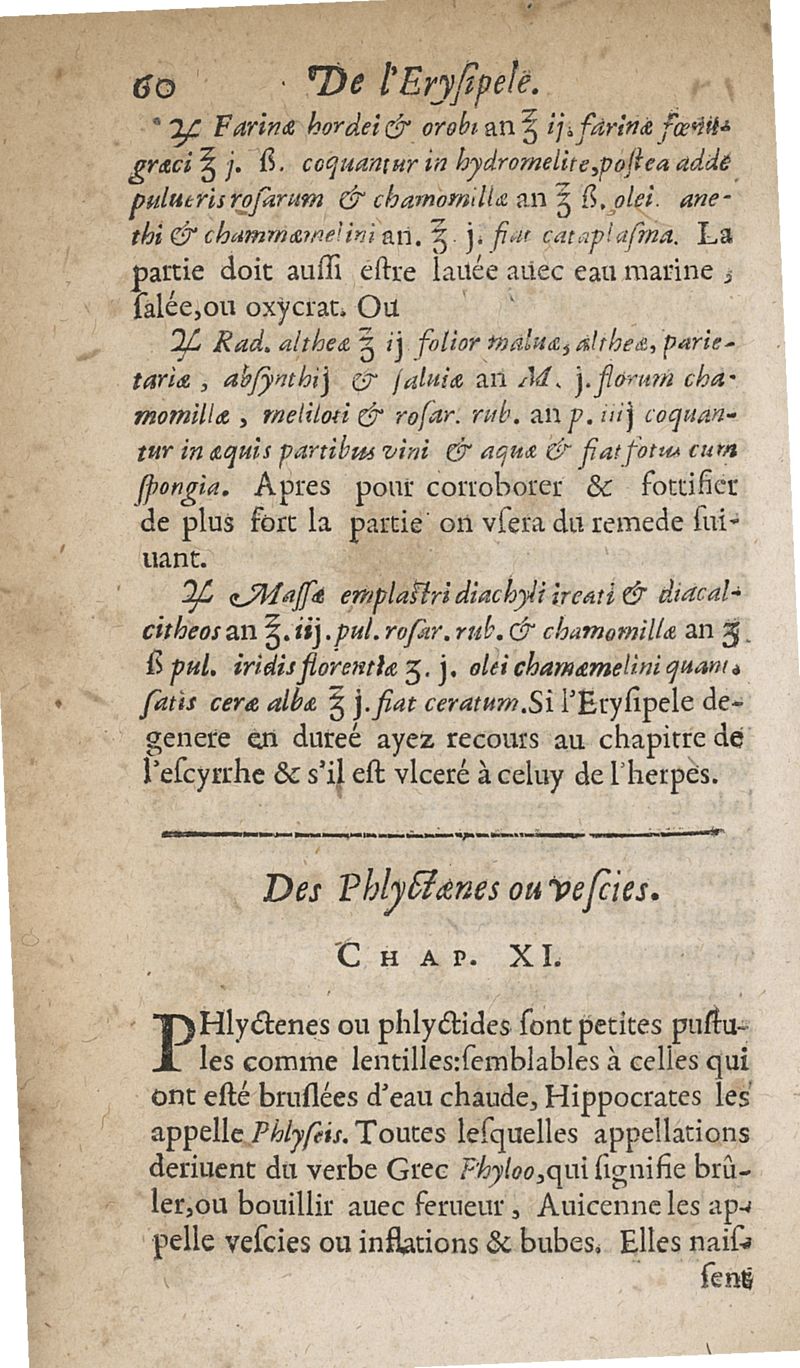 60 De l'Eryſipele.
♃ Farinæ hordei & orobi an ℥ ij. farinæ fœnu-
græci ℥ j. ß. coquantur in hydromelite, poſtea adde
pulueris roſarum & chamomillæ an ℥ ß. olei. ane-
thi & chammæmelini an. ℥. j. fiat cataplaſma. La
partie doit auſſi eſtre lauée auec eau marine,
ſalée, ou oxycrat. Ou
♃ Rad. altheæ ℥ ij folior maluæ, altheæ, parie-
tariæ, abſynthij & ſaluiæ an M. j. florum cha-
momillæ, meliloti & roſar. rub. an p. iiij coquan-
tur in æquis partibus vini & aquæ & fiat fotus cum
ſpongia. Apres pour corroborer & fortifier
de plus fort la partie on vſera du remede ſui-
uant.
♃ Maſſæ emplaſtri diachyli ireati & diacal-
citheos an ℥. iij. pul. roſar. rub. & chamomillæ an ʒ.
ß pul. iridis florentiæ ʒ. j. olei chamæmelini quant.
ſatis ceræ albæ ℥ j. fiat ceratum. Si l'Eryſipele de-
genere en dureé ayez recours au chapitre de
l'eſcyrrhe & s'il eſt vlceré à celuy de l'herpes.
Des Phlyctænes ou veſcies.
CHAP. XI.
PHlyctenes ou phlyctides ſont petites puſtu-
les comme lentilles: ſemblables à celles qui
ont eſté bruſlées d'eau chaude, Hippocrates les
appelle Phlyſeis. Toutes leſquelles appellations
deriuent du verbe Grec Phyloo, qui ſignifie brû-
ler, ou bouillir auec ferueur, Auicenne les ap-
pelle veſcies ou inflations & bubes. Elles naiſ-
ſent